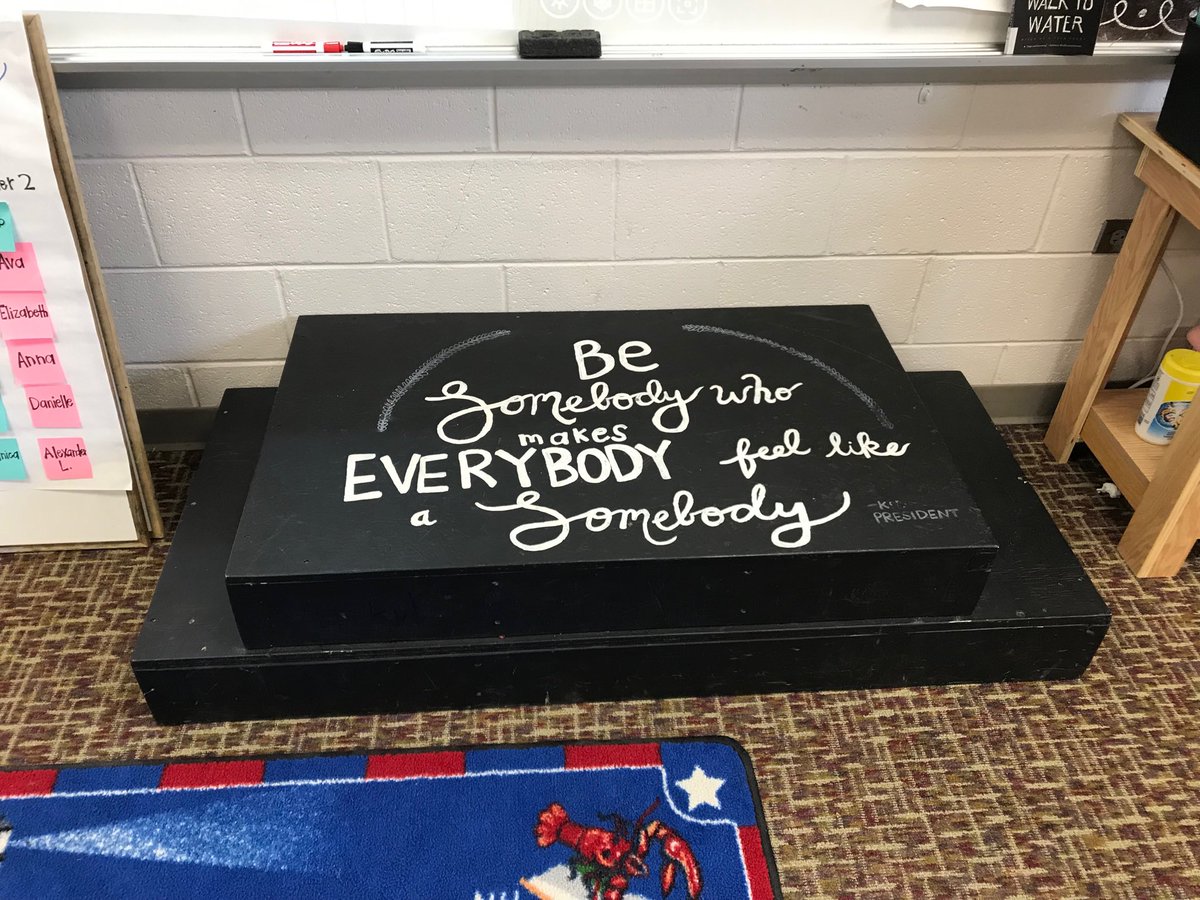 WALK TO
WATER
er 2
Ava
Elizabeth
Anna
Danielle
Alexandra
L.
Be
Somebody who
makes
EVERYBODY feel like
a Somebody
PRESIDENT